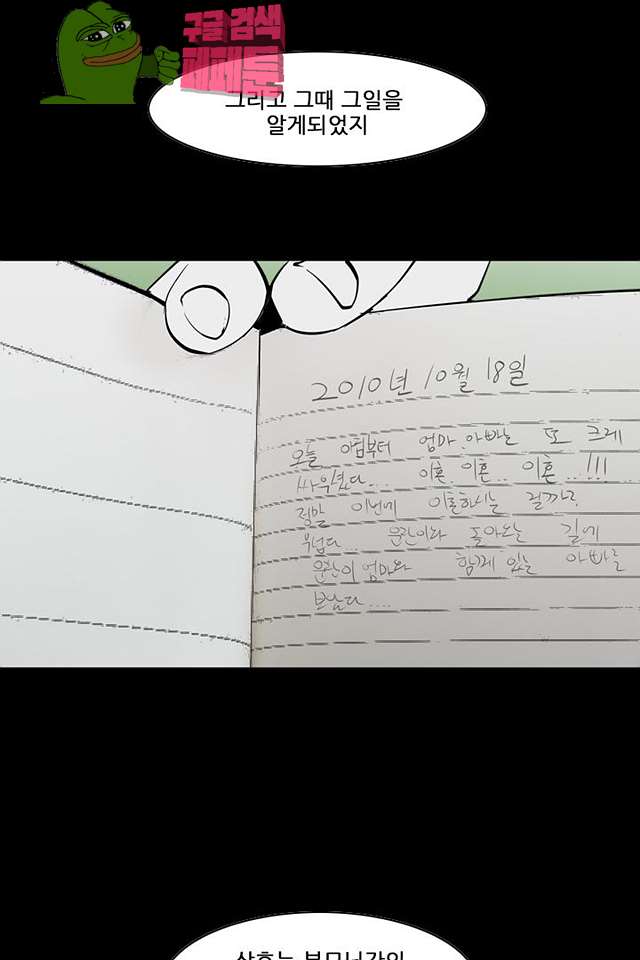 구글 검색
페페툰
그리고 그때 그일을
알게되었지
2010년 10월 18일
오늘 아침부터 엄마.아빠는 또 크게
싸우셨다.... 이혼 이혼.. 이혼...!!!
정말 이번에 이혼하시는 걸까?
무섭다... 윤찬이와 돌아오는 길에
윤찬이 엄마와 함께 있는 아빠를
보았다....